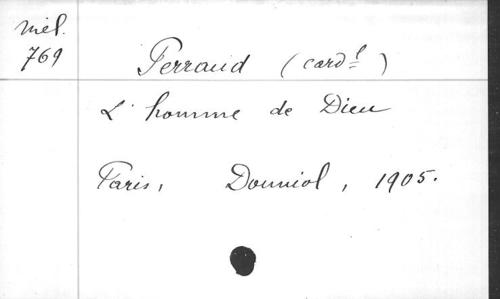 Mél.
769
Perraud (cardl)
L'homme de Dieu
Paris, Douniol, 1905.